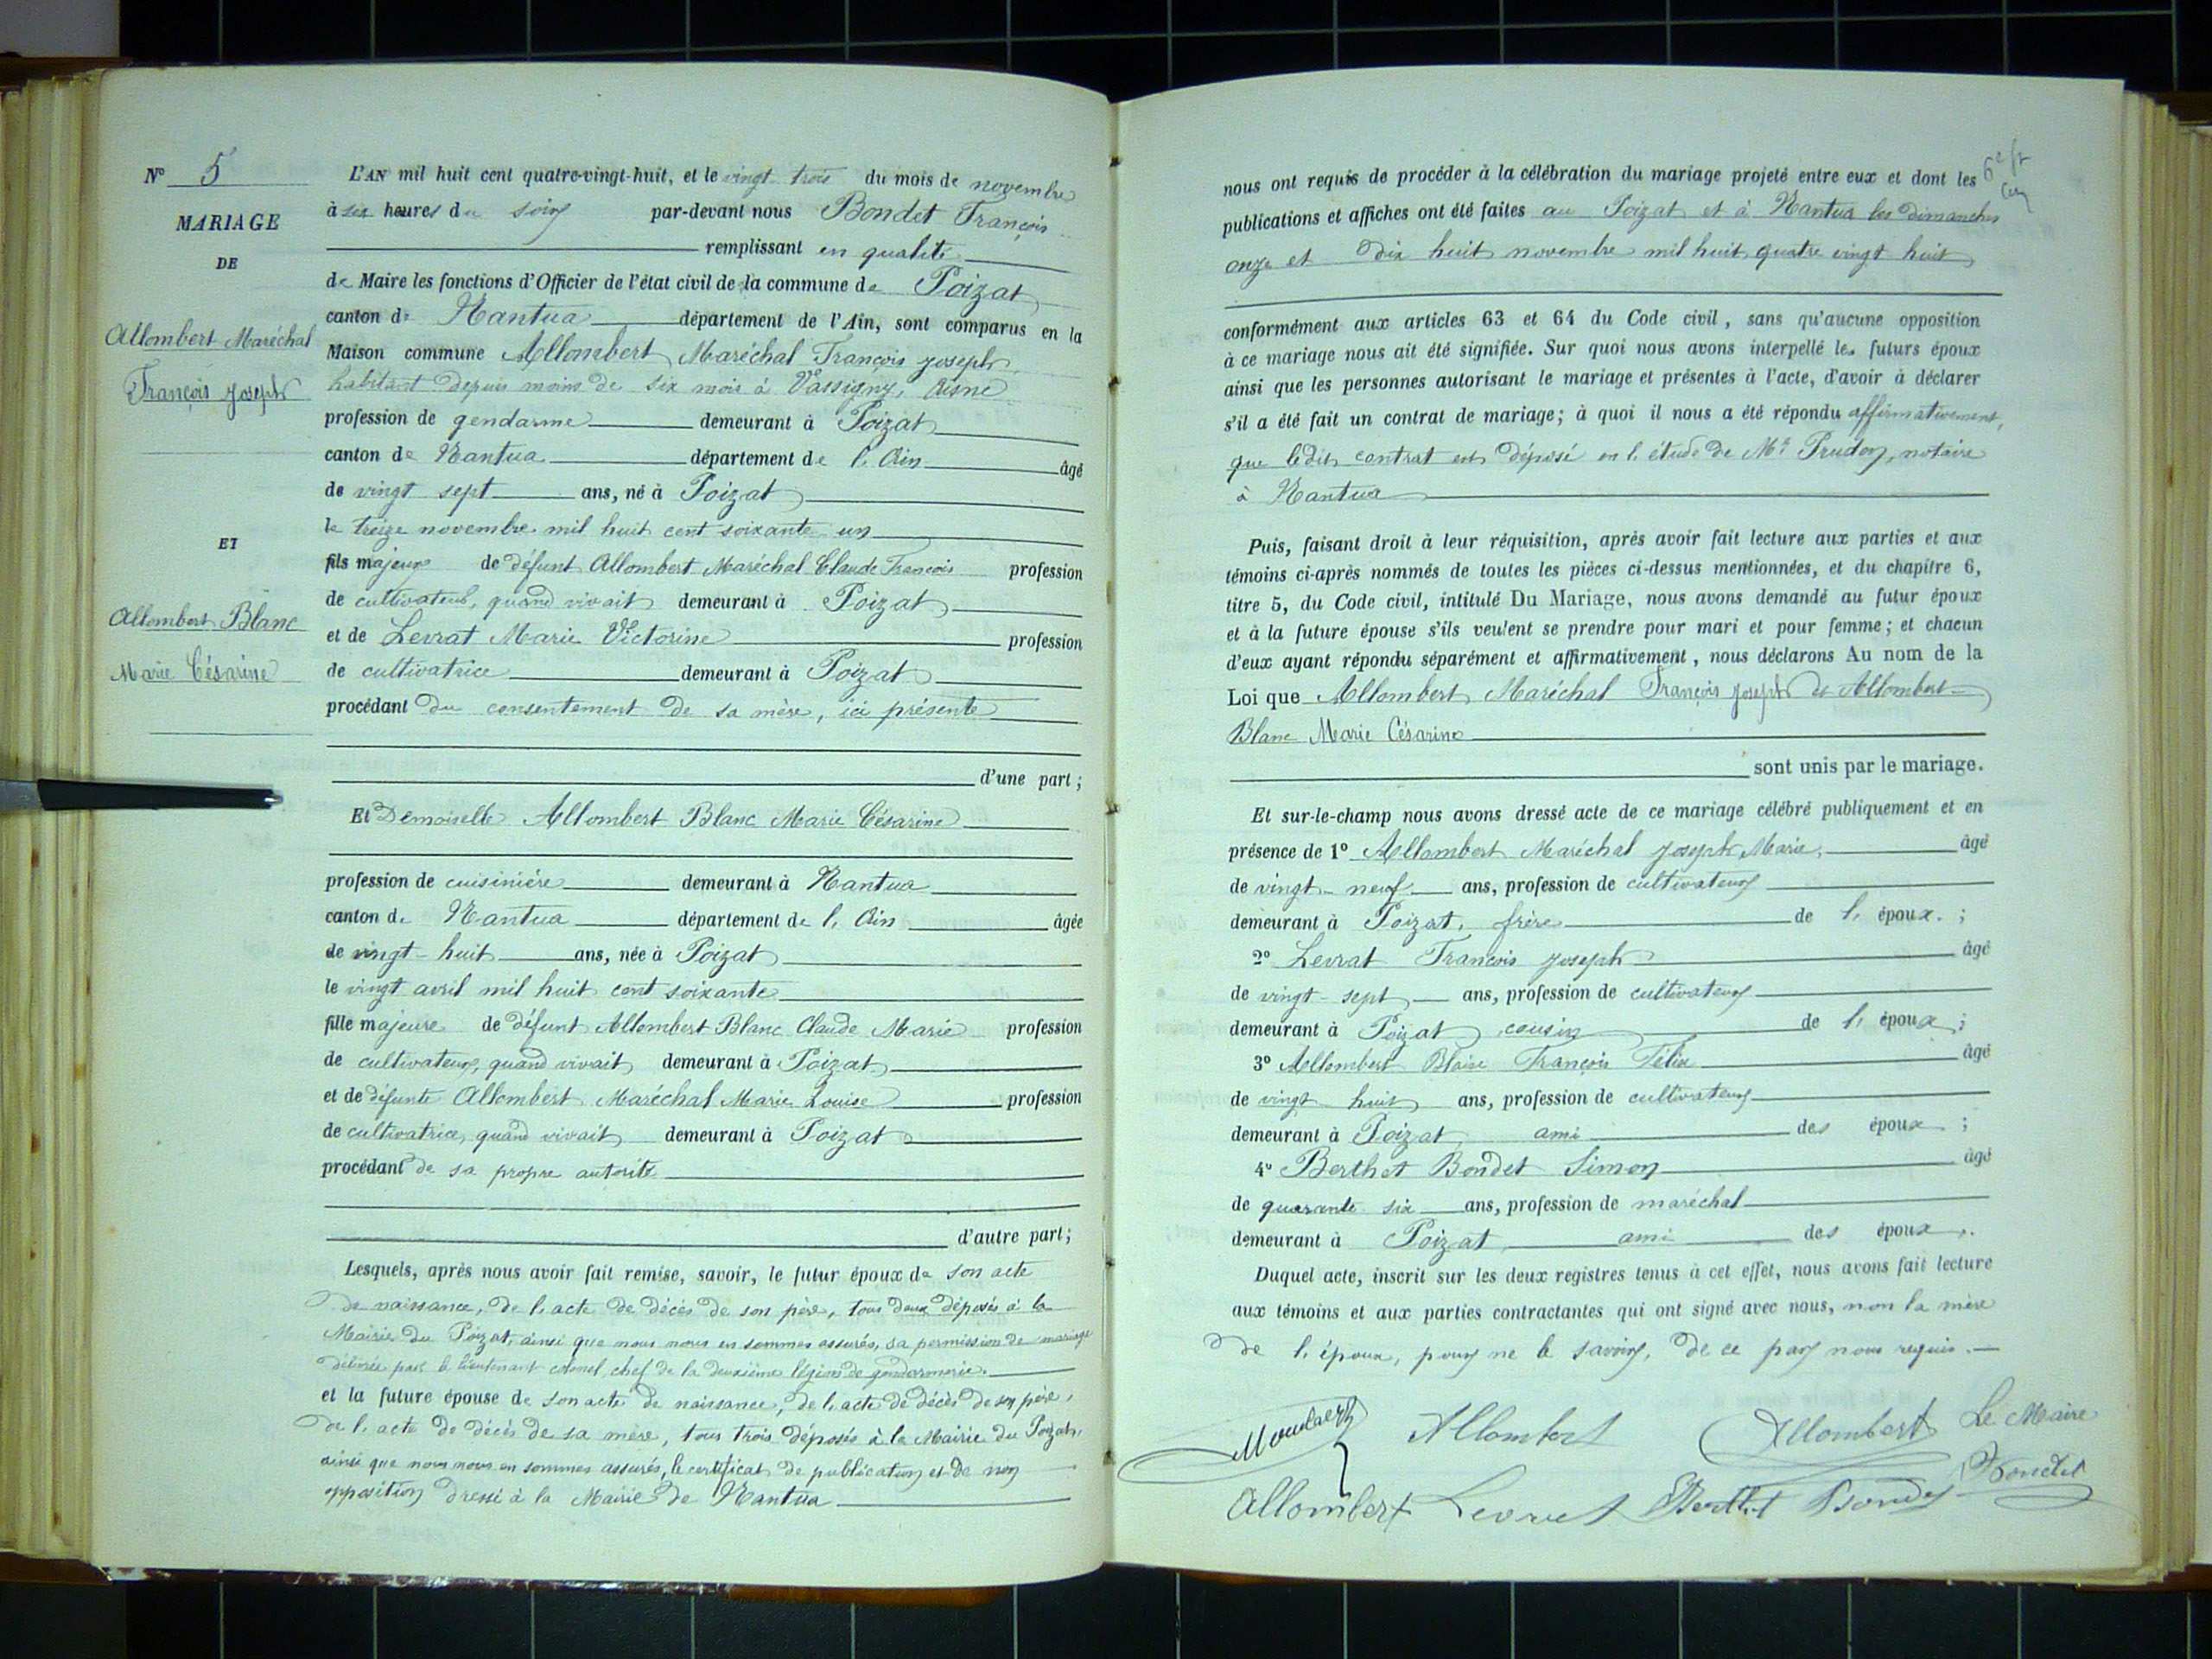 N° 5
MARIAGE
DE
Allombert Maréchal
François Joseph
ET
Allombert Blanc
Marie Césarine
L'AN mil huit cent quatre-vingt-huit, et le vingt trois du mois de novembre
à six heures du soir par-devant nous Bondet François
remplissant en qualité
de Maire les fonctions d'Officier de l'état civil de la commune de Poizat
canton de Nantua département de l'Ain, sont comparus en la
Maison commune Allombert Maréchal François Joseph
habitant depuis moins de six mois à Vassigny, Aisne
profession de gendarme demeurant à Poizat
canton de Nantua département de l'Ain âgé
de vingt sept ans, né à Poizat
le treize novembre mil huit cent soixante un
fils majeur de défunt Allombert Maréchal Claude François profession
de cultivateur, quand vivait demeurant à Poizat
et de Levrat Marie Victorine profession
de cultivatrice demeurant à Poizat
procédant du consentement de sa mère, ici présente
d'une part ;
Et Demoiselle Allombert Blanc Marie Césarine
profession de cuisinière demeurant à Nantua
canton de Nantua département de l'Ain âgée
de vingt-huit ans, née à Poizat
le vingt avril mil huit cent soixante
fille majeure de défunt Allombert Blanc Claude Marie profession
de cultivateur, quand vivait demeurant à Poizat
et de défunte Allombert Maréchal Marie Louise profession
de cultivatrice, quand vivait demeurant à Poizat
procédant de sa propre autorité
d'autre part ;
Lesquels, après nous avoir fait remise, savoir, le futur époux de son acte
de naissance, de l'acte de décès de son père, tous deux déposés à la
Mairie du Poizat, ainsi que nous nous en sommes assurés, sa permission de mariage
délivrée par le lieutenant colonel, chef de la deuxième légion de gendarmerie.
et la future épouse de son acte de naissance, de l'acte de décès de son père,
de l'acte de décès de sa mère, tous trois déposés à la Mairie du Poizat,
ainsi que nous nous en sommes assurés, le certificat de publication et de non
opposition dressé à la Mairie de Nantua
nous ont requis de procéder à la célébration du mariage projeté entre eux et dont les
publications et affiches ont été faites au Poizat et à Nantua les dimanches
onze et dix huit novembre mil huit quatre vingt huit
conformément aux articles 63 et 64 du Code civil, sans qu'aucune opposition
à ce mariage nous ait été signifiée. Sur quoi nous avons interpellé les futurs époux
ainsi que les personnes autorisant le mariage et présentes à l'acte, d'avoir à déclarer
s'il a été fait un contrat de mariage ; à quoi il nous a été répondu affirmativement,
que ledit contrat est déposé en l'étude de Me Prudon, notaire
à Nantua
Puis, faisant droit à leur réquisition, après avoir fait lecture aux parties et aux
témoins ci-après nommés de toutes les pièces ci-dessus mentionnées, et du chapitre 6,
titre 5, du Code civil, intitulé Du Mariage, nous avons demandé au futur époux
et à la future épouse s'ils veulent se prendre pour mari et pour femme ; et chacun
d'eux ayant répondu séparément et affirmativement, nous déclarons Au nom de la
Loi que Allombert Maréchal François Joseph et Allombert
Blanc Marie Césarine
sont unis par le mariage.
Et sur-le-champ nous avons dressé acte de ce mariage célébré publiquement et en
présence de 1° Allombert Maréchal Joseph Marie, âgé
de vingt-neuf ans, profession de cultivateur
demeurant à Poizat, frère de l'époux. ;
2° Levrat François Joseph âgé
de vingt-sept ans, profession de cultivateur
demeurant à Poizat, cousin de l'époux ;
3° Allombert Blaise François Félix âgé
de vingt huit ans, profession de cultivateur
demeurant à Poizat, ami des époux ;
4° Berthet Bondet Simon âgé
de quarante six ans, profession de maréchal
demeurant à Poizat, ami des époux.
Duquel acte, inscrit sur les deux registres tenus à cet effet, nous avons fait lecture
aux témoins et aux parties contractantes qui ont signé avec nous, non la mère
de l'époux, pour ne le savoir, de ce par nous requis.
Allombert Allombert Le Maire
Bondet
Allombert Levrat Berthet Bondet